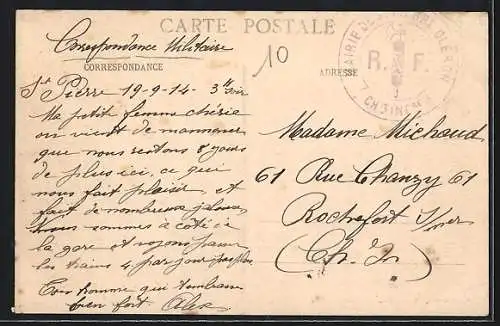 CARTE POSTALE
Correspondance Militaire
CORRESPONDANCE
10
ADRESSE
R F
St Pierre 19-9-14 - 3h soir
Ma petite femme chérie
on vient de
que nous restons 8 jours
de plus ici, ce qui
nous fait plaisir, et
fait de nombreux jaloux,
Nous sommes à côté de
la gare et voyons passer
les trains 4 par jour pas plus
Ton homme qui
bien fort Alex
Madame Michaud
61 Rue Chanzy 61
Rochefort s/mer
(Ch. Inf)